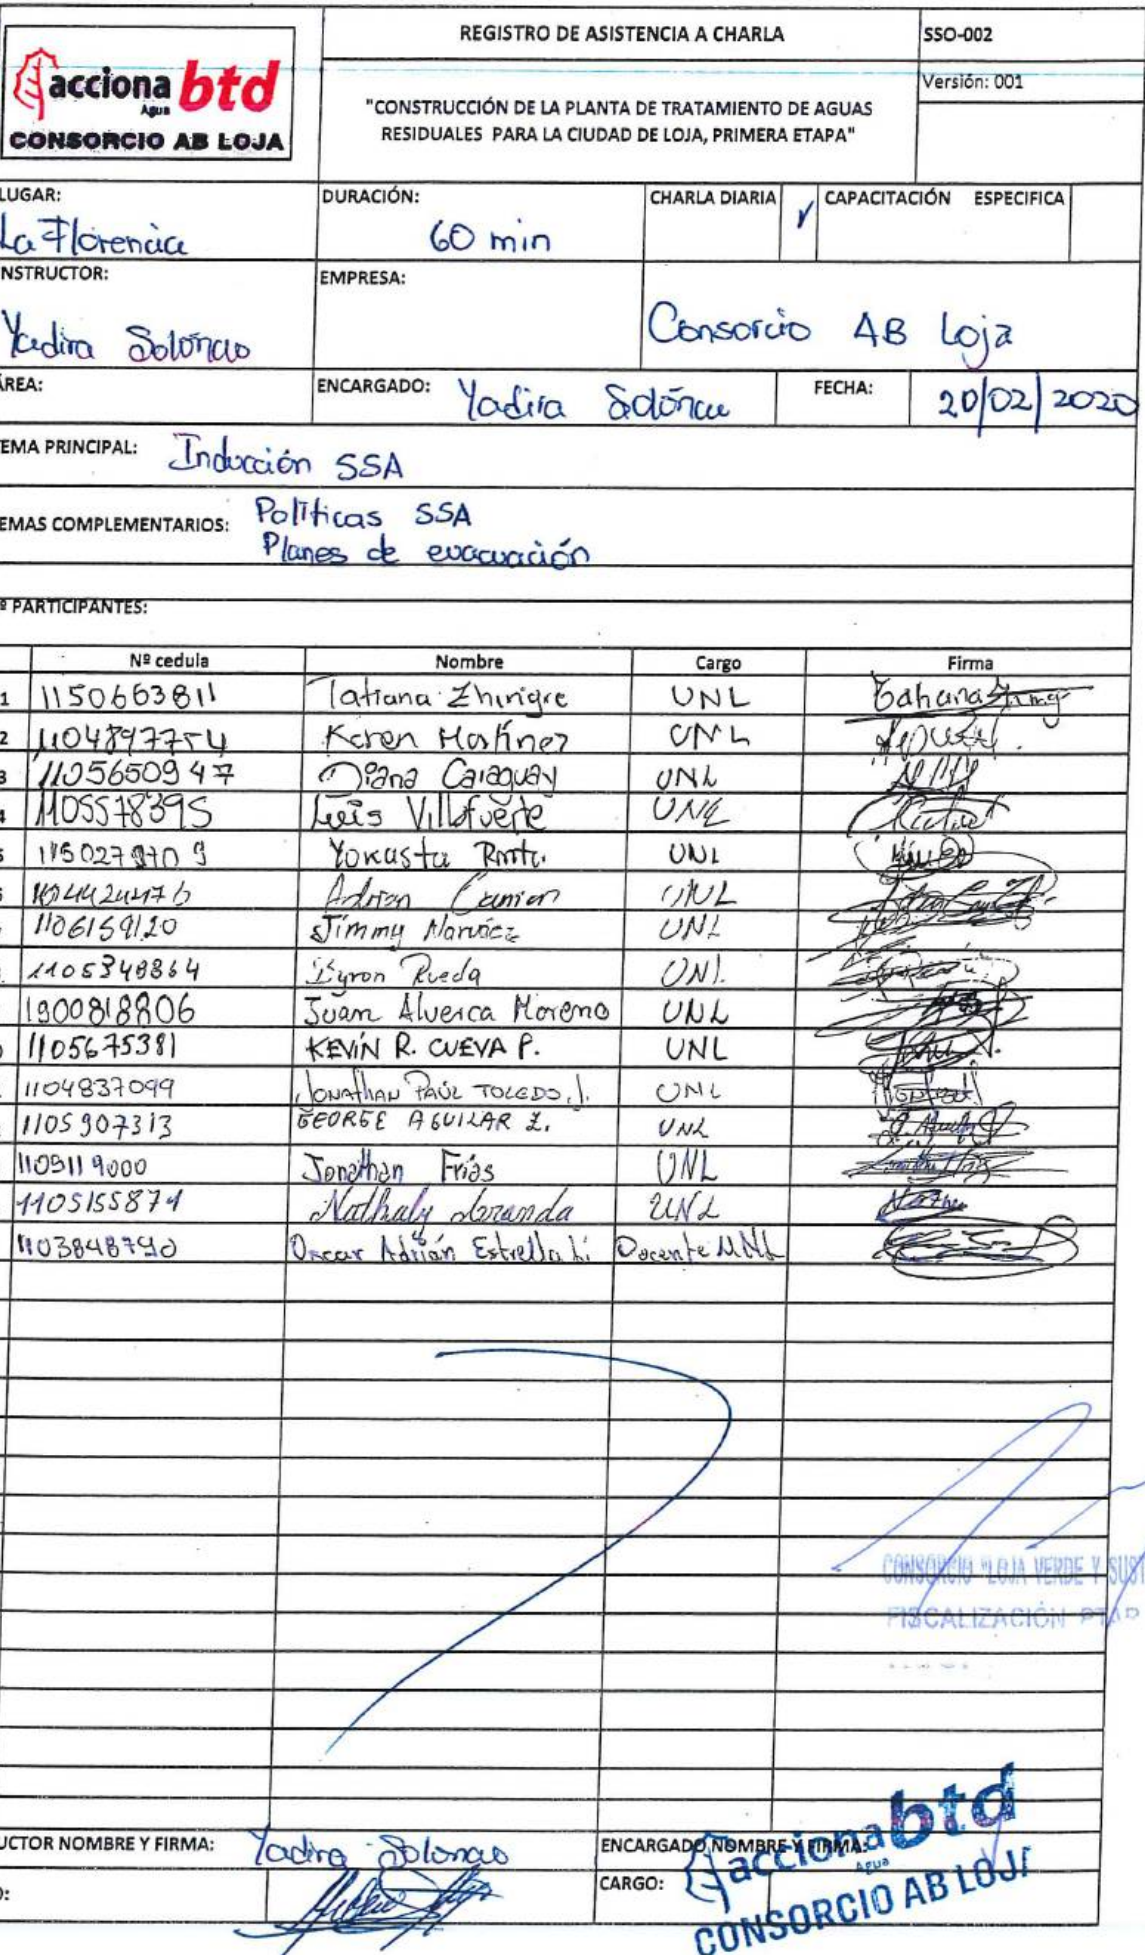 acciona btd
Agua
CONSORCIO AB LOJA
REGISTRO DE ASISTENCIA A CHARLA
SSO-002
"CONSTRUCCIÓN DE LA PLANTA DE TRATAMIENTO DE AGUAS
RESIDUALES PARA LA CIUDAD DE LOJA, PRIMERA ETAPA"
Versión: 001
LUGAR:
La Florencia
DURACIÓN:
60 min
CHARLA DIARIA
CAPACITACIÓN ESPECIFICA
NSTRUCTOR:
Yadira Solórzao
EMPRESA:
Consorcio AB Loja
ÁREA:
ENCARGADO: Yadira
FECHA: 20/02/2020
EMA PRINCIPAL: Inducción SSA
EMAS COMPLEMENTARIOS: Políticas SSA
Planes de evacuación
º PARTICIPANTES:
Nº cedula Nombre Cargo Firma
1 1150663811 Tatiana Zhingre UNL
2 1104897754 Karen Martinez UNL
3 1105650947 Diana Caraguay UNL
1105578395 Luis Villafuerte UNL
Yokasta UNL
Adrian UNL
1106159120 Jimmy Narváez UNL
1105348864 Byron Rueda UNL
1900818806 Juan Alverca Moreno UNL
1105675381 KEVIN R. CUEVA P. UNL
1104837099 JONATHAN PAÚL TOLEDO J. UNL
1105907313 GEORGE AGUILAR Z. UNL
1105119000 Jonathan Frías UNL
1105155874 Nathaly Granda UNL
1103848790 Oscar Adrián Estrella Docente UNL
CONSORCIO "LOJA VERDE Y SUST
FISCALIZACIÓN PTAR
UCTOR NOMBRE Y FIRMA: Yadira
ENCARGADO NOMBRE Y FIRMA:
O:
CARGO:
acciona btd
Agua
CONSORCIO AB LOJA